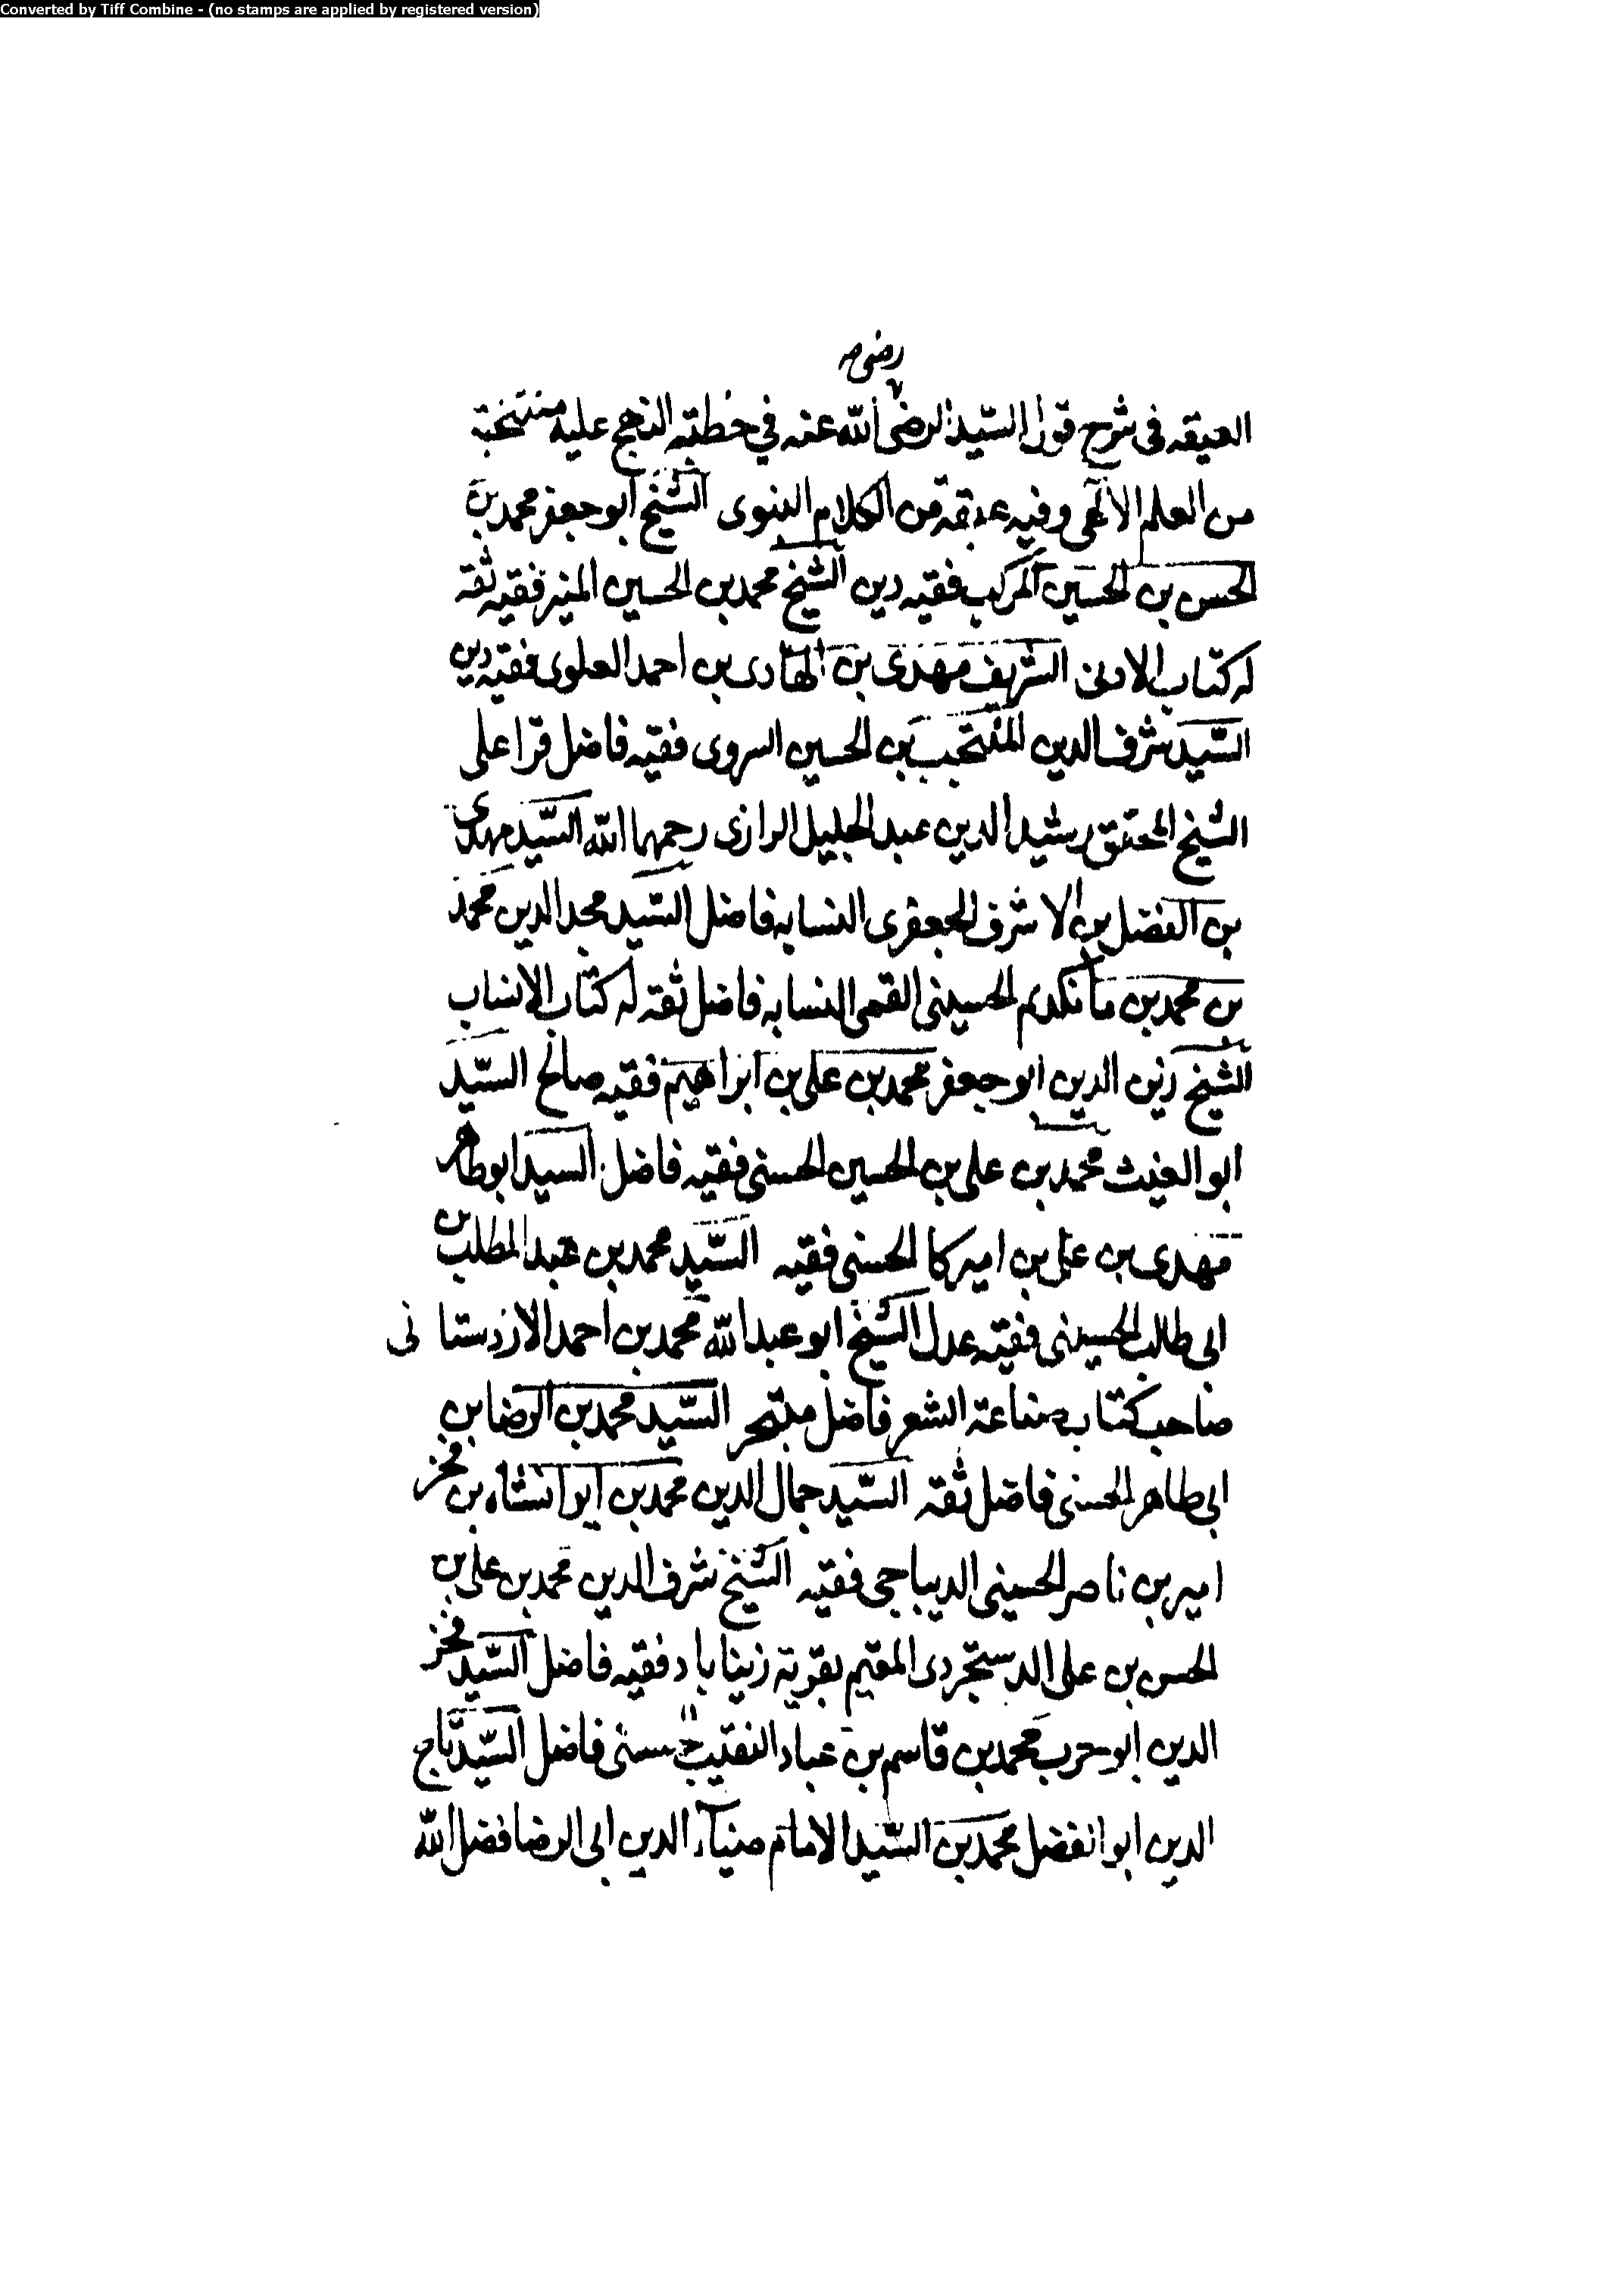 Converted by Tiff Combine - (no stamps are applied by registered version)
رضى
العبقه فى شرح قول السيد الرضى الله عنه في خطبته النهج عليه
من العلم الالهى وفيه عبقة من الكلام النبوى الشيخ ابو جعفر محمد بن
الحسن بن الحسين المركب فقيه دين الشيخ محمد بن الحسين المنير فقيه ثقه
له كتاب الشريف مهدى بن الهادى بن احمد العلوى فقيه دين
السّيد شرف الدين المنتجب بن الحسين السروى فقيه فاضل قرا على
الشيخ المحقق رشيد الدين عبد الجليل الرازى رحمهما الله السّيد مهدى
بن الفضل بن الاشرف الجعفرى النسابه فاضل السّيد مجد الدين محمد
بن محمد بن مانكديم الحسينى القمى النسابه فاضل ثقه له كتاب الانساب
الشيخ زين الدين ابو جعفر محمد بن على بن ابراهيم فقيه صالح السّيد
ابو الغيث محمد بن على بن الحسين الحسنى فقيه فاضل السيد ابو طاهر
مهدى بن على بن اميركا الحسنى فقيه السّيد محمد بن عبد المطلب بن
ابى طالب الحسينى فقيه عدل الشيخ ابو عبد الله محمد بن احمد الاردستانى
صاحب كتاب صناعة الشعر فاضل متبحر السّيد محمد بن الرضا بن
ابى طاهر الحسنى فاضل ثقه السّيد جمال الدين محمد بن ايرانشاه بن فخر
امير بن ناصر الحسينى الديباجى فقيه الشيخ شرف الدين محمد بن على بن
الحسن بن على الدستجردى المقيم بقرية زيناباد فقيه فاضل السّيد فخر
الدين ابو حرب محمد بن قاسم بن عباد النقيب حسنى فاضل السّيد تاج
الدين ابو الفضل محمد بن السّيد الامام ضياء الدين ابى الرضا فضل الله